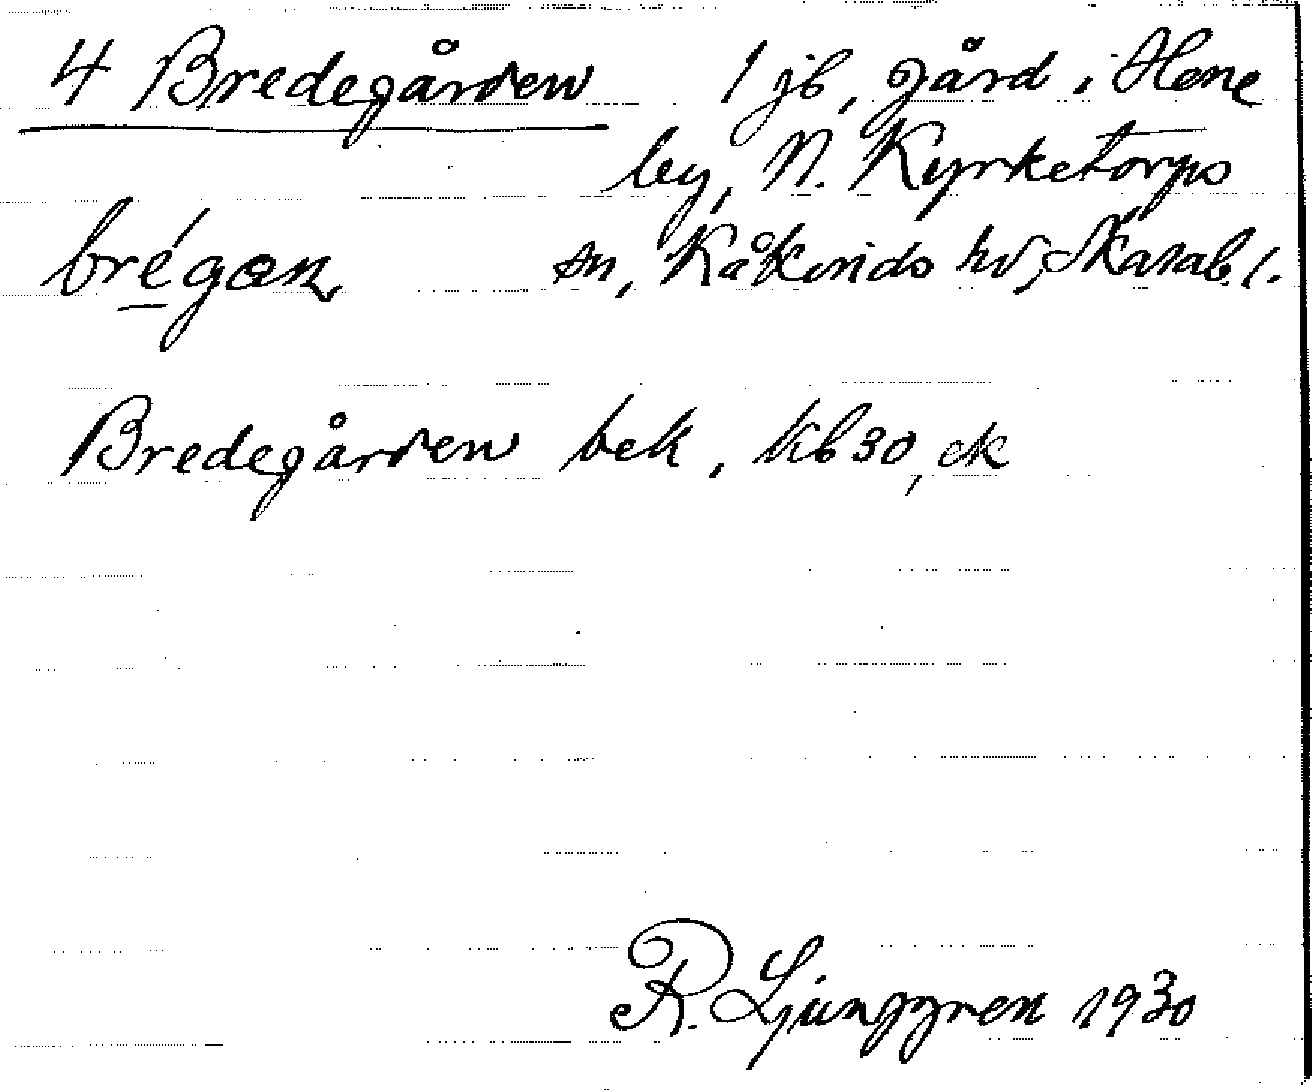 4 Bredegården 1 jb, gård i Hene
by, N. Kyrketorps
brégan sn, Kåkinds hd, Skarab. l.
Bredegården bek, kb 30, ek
R. Ljunggren 1930